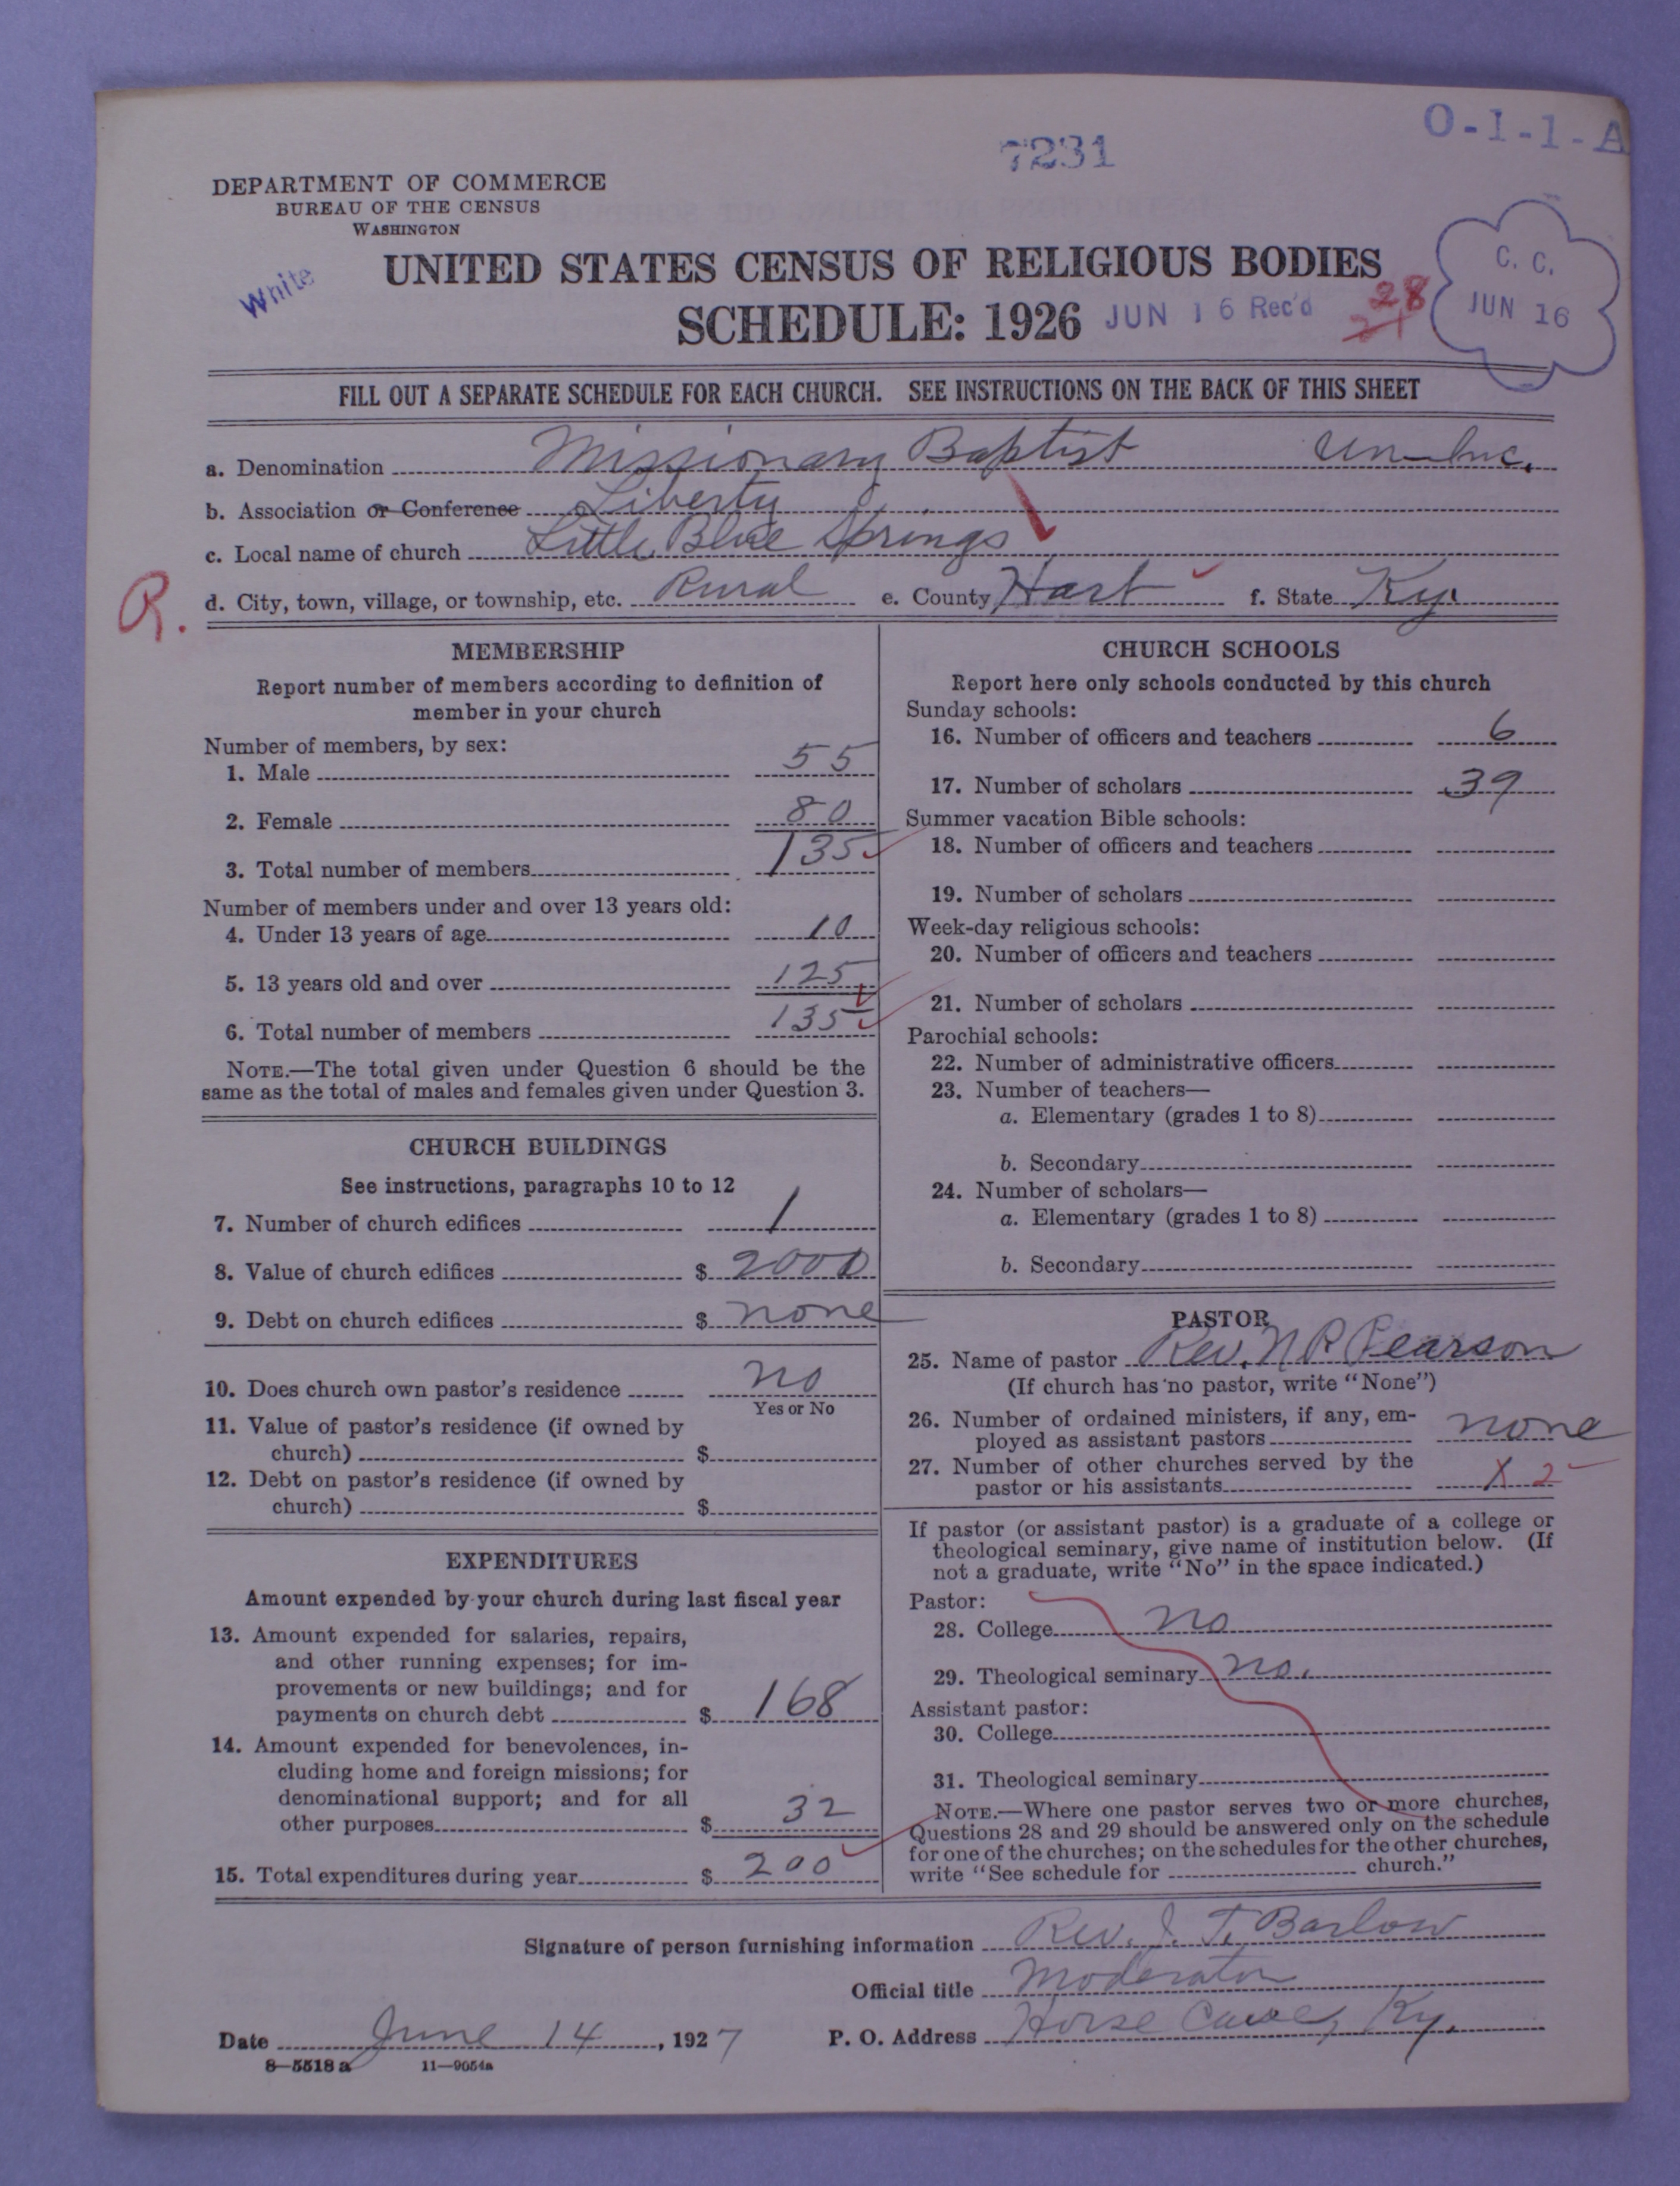 7231
O-I-1-A
DEPARTMENT OF COMMERCE
BUREAU OF THE CENSUS
WASHINGTON
White
UNITED STATES CENSUS OF RELIGIOUS BODIES
SCHEDULE: 1926
JUN 16 Rec'd
28
21
C. C.
JUN 16
FILL OUT A SEPARATE SCHEDULE FOR EACH CHURCH. SEE INSTRUCTIONS ON THE BACK OF THIS SHEET
a. Denomination Missionary Baptist Un-Inc.
b. Association or Conference Liberty
c. Local name of church Little Blue Springs
R.
d. City, town, village, or township, etc. Rural e. County Hart f. State Ky.
MEMBERSHIP
Report number of members according to definition of
member in your church
Number of members, by sex:
1. Male 55
2. Female 80
3. Total number of members 135
Number of members under and over 13 years old:
4. Under 13 years of age 10
5. 13 years old and over 125
6. Total number of members 135
NOTE.—The total given under Question 6 should be the
same as the total of males and females given under Question 3.
CHURCH BUILDINGS
See instructions, paragraphs 10 to 12
7. Number of church edifices 1
8. Value of church edifices $ 2000
9. Debt on church edifices $ none
10. Does church own pastor's residence no
Yes or No
11. Value of pastor's residence (if owned by
church) $
12. Debt on pastor's residence (if owned by
church) $
EXPENDITURES
Amount expended by your church during last fiscal year
13. Amount expended for salaries, repairs,
and other running expenses; for im-
provements or new buildings; and for
payments on church debt $ 168
14. Amount expended for benevolences, in-
cluding home and foreign missions; for
denominational support; and for all
other purposes $ 32
15. Total expenditures during year $ 200
CHURCH SCHOOLS
Report here only schools conducted by this church
Sunday schools:
16. Number of officers and teachers 6
17. Number of scholars 39
Summer vacation Bible schools:
18. Number of officers and teachers
19. Number of scholars
Week-day religious schools:
20. Number of officers and teachers
21. Number of scholars
Parochial schools:
22. Number of administrative officers
23. Number of teachers—
a. Elementary (grades 1 to 8)
b. Secondary
24. Number of scholars—
a. Elementary (grades 1 to 8)
b. Secondary
PASTOR
25. Name of pastor Rev. N R Pearson
(If church has no pastor, write "None")
26. Number of ordained ministers, if any, em-
ployed as assistant pastors none
27. Number of other churches served by the
pastor or his assistants X 2
If pastor (or assistant pastor) is a graduate of a college or
theological seminary, give name of institution below. (If
not a graduate, write "No" in the space indicated.)
Pastor:
28. College no
29. Theological seminary no.
Assistant pastor:
30. College
31. Theological seminary
NOTE.—Where one pastor serves two or more churches,
Questions 28 and 29 should be answered only on the schedule
for one of the churches; on the schedules for the other churches,
write "See schedule for church."
Signature of person furnishing information Rev. J. T. Barlow
Official title Moderator
Date June 14, 1927 P. O. Address Horse Cave, Ky.
8—5518 a 11—9054a